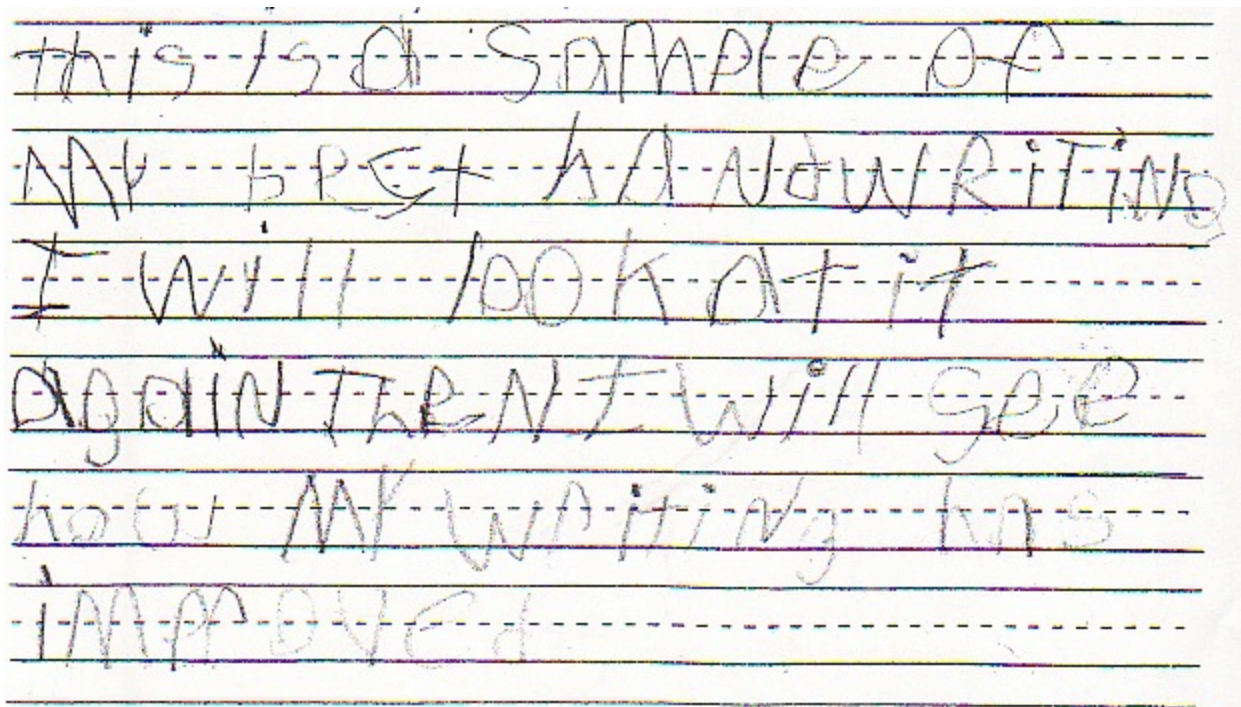 this is a sample of
My best haNdWRiTiNg
I will look at it
again TheN I will see
how My writiNg has
improved